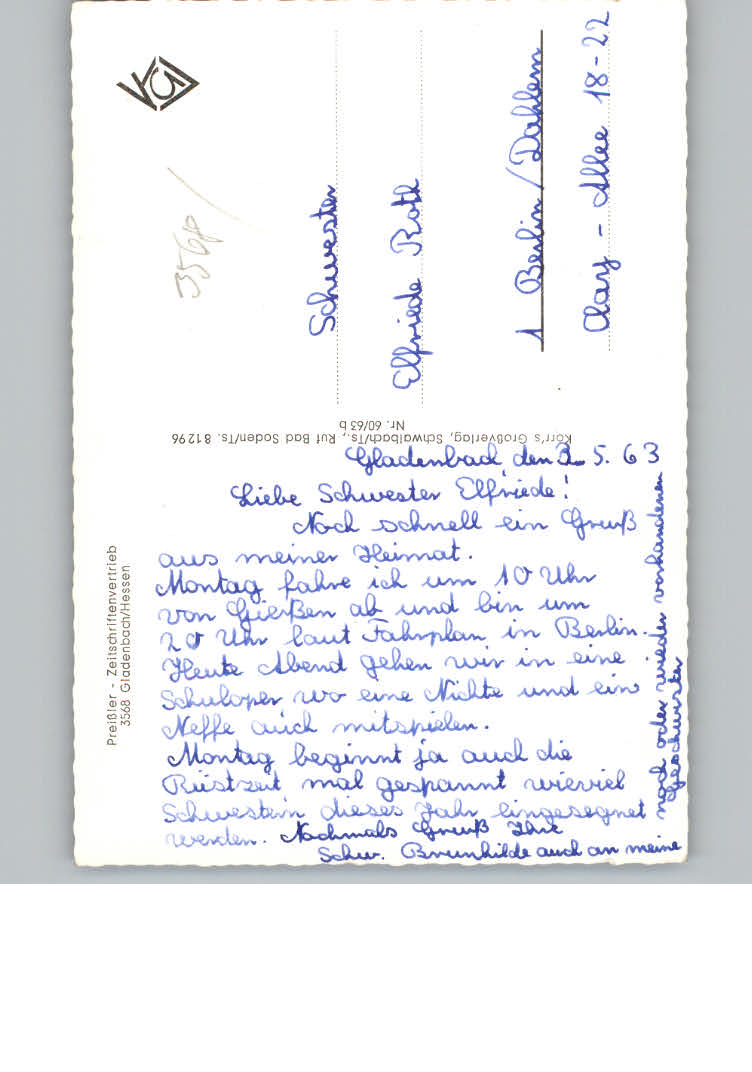 Gladenbach, den 3. 5. 63
Liebe Schwester Elfriede!
Noch schnell ein Gruß
aus meiner Heimat.
Montag fahre ich um 10 Uhr
von Gießen ab und bin um
20 Uhr laut Fahrplan in Berlin.
Heute Abend gehen wir in eine
Schuloper wo eine Nichte und ein
Neffe auch mitspielen.
Montag beginnt ja auch die
Rüstzeit mal gespannt wieviel
Schwestern dieses Jahr eingesegnet
werden. Nochmals Gruß Ihre
Schw. Brunhilde auch an meine
noch oder wieder vorhandenen
Geschwister
Schwester
Elfriede Roth
1 Berlin/Dahlem
Clay - Allee 18-22
3568
Preißler - Zeitschriftenvertrieb
3568 Gladenbach/Hessen
Körr's Großverlag, Schwalbach/Ts., Ruf Bad Soden/Ts. 81296
Nr. 60/63 b